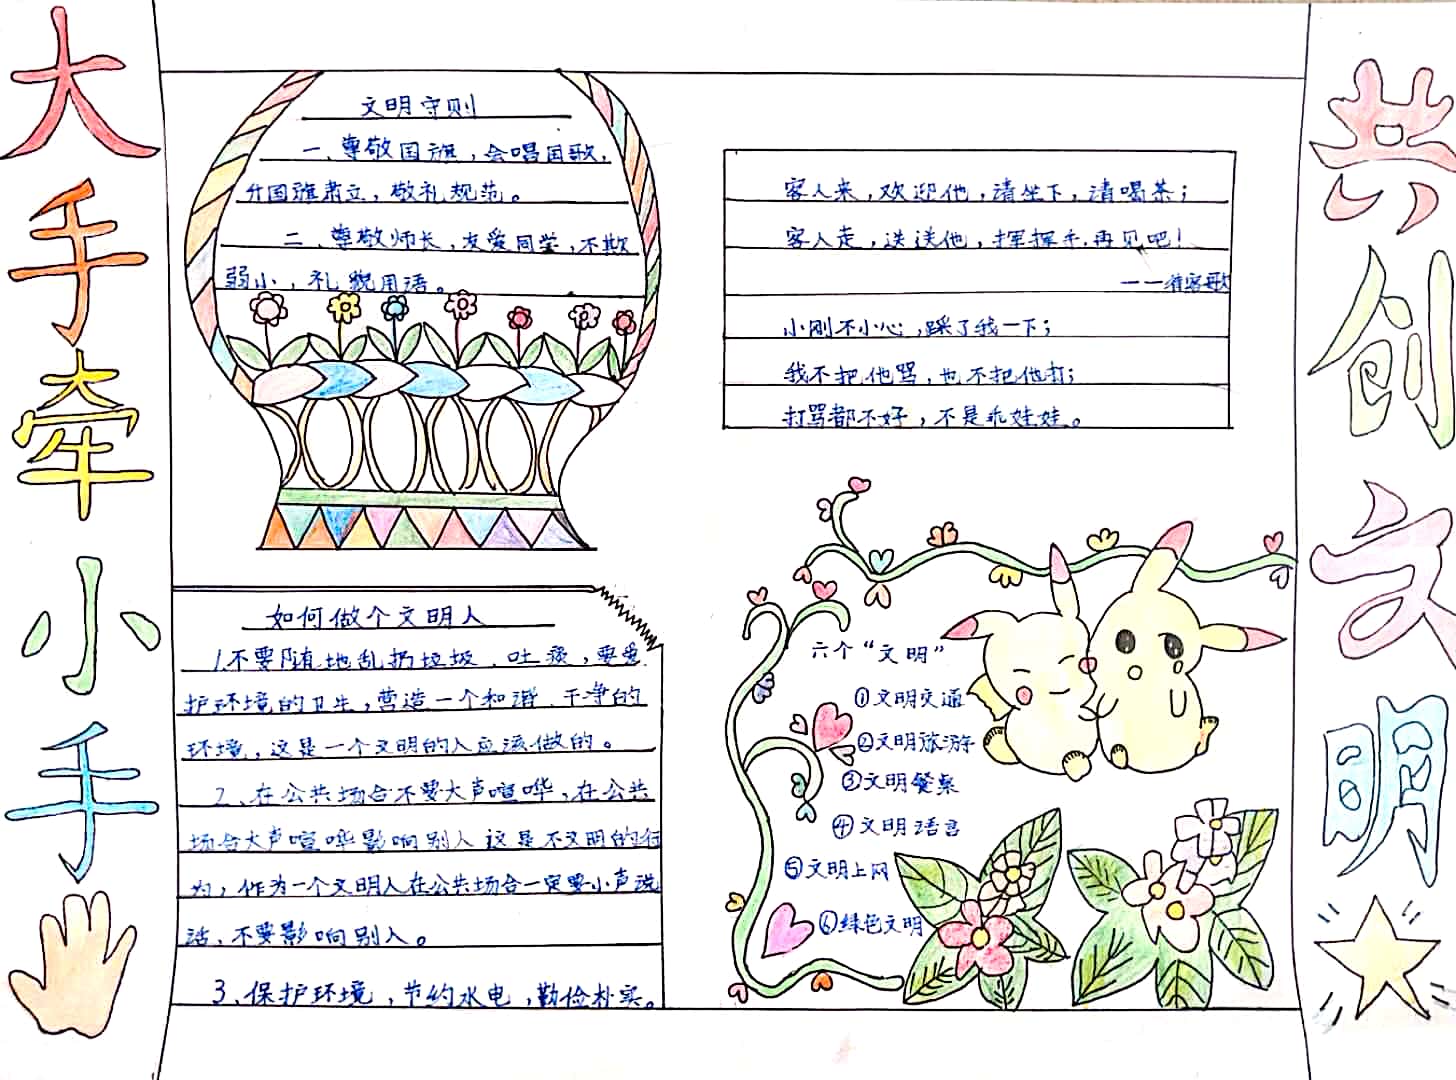 大手牵小手
文明守则
一、尊敬国旗,会唱国歌,
升国旗肃立,敬礼规范。
二、尊敬师长,友爱同学,不欺
弱小,礼貌用语。
如何做个文明人
1、不要随地乱扔垃圾、吐痰,要爱
护环境的卫生,营造一个和谐、干净的
环境,这是一个文明的人应该做的。
2、在公共场合不要大声喧哗,在公共
场合大声喧哗影响别人 这是不文明的行
为,作为一个文明人在公共场合一定要小声说
话,不要影响别人。
3、保护环境,节约水电,勤俭朴实。
客人来,欢迎他,请坐下,请喝茶;
客人走,送送他,挥挥手,再见吧!
——请客歌
小刚不小心,踩了我一下;
我不把他骂,也不把他打;
打骂都不好,不是乖娃娃。
六个“文明”
①文明交通
②文明旅游
③文明餐桌
④文明语言
⑤文明上网
⑥绿色文明
共创文明